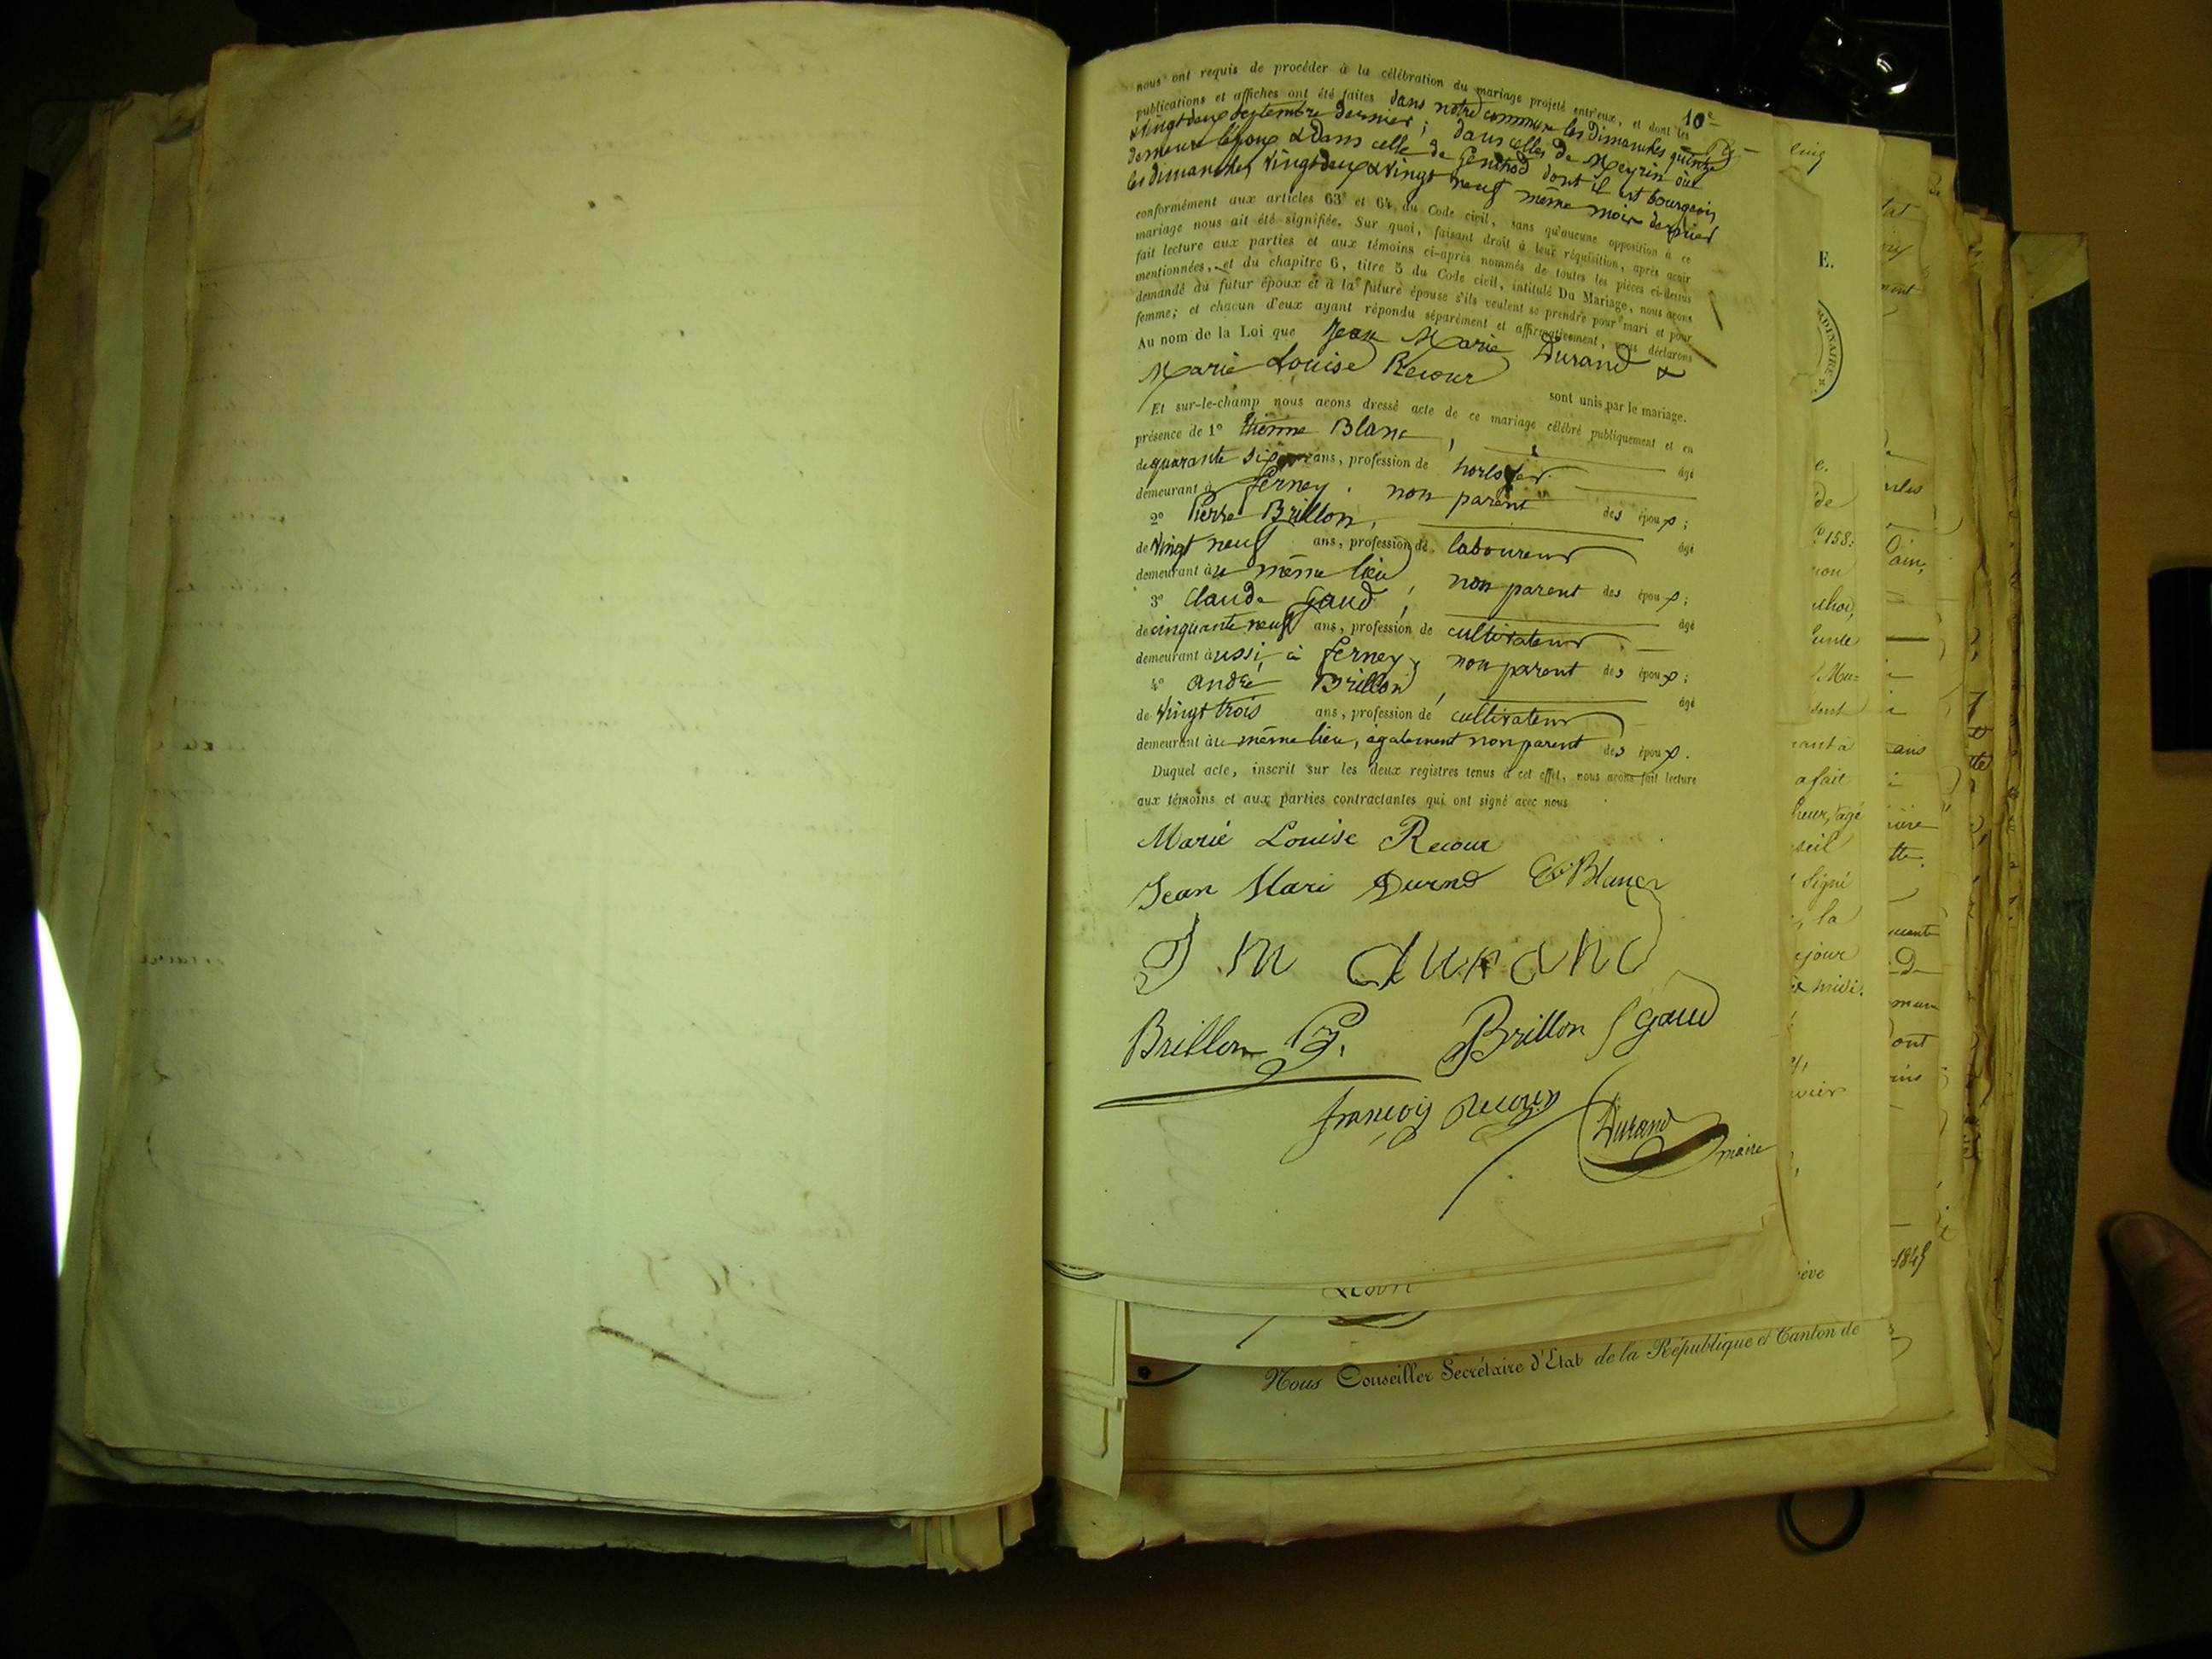 nous ont requis de procéder à la célébration du mariage projeté entr'eux, et dont les
10e
publications et affiches ont été faites dans notre commune les Dimanches quinze
& vingt deux septembre dernier; dans celles de Meyrin où il
demeure & dans celle de Genthod dont il est bourgeois
les dimanches vingt deux & vingt neuf même mois dernier
conformément aux articles 63 et 64, du Code civil, sans qu'aucune opposition à ce
mariage nous ait été signifiée. Sur quoi, faisant droit à leur réquisition, après avoir
fait lecture aux parties et aux témoins ci-après nommés de toutes les pièces ci-dessus
mentionnées, et du chapitre 6, titre 5 du Code civil, intitulé Du Mariage, nous avons
demandé au futur époux et à la future épouse s'ils veulent se prendre pour mari et pour
femme; et chacun d'eux ayant répondu séparément et affirmativement, nous déclarons
Au nom de la Loi que Jean Marie Durand &
Marie Louise Recour
sont unis par le mariage.
Et sur-le-champ nous avons dressé acte de ce mariage célébré publiquement et en
présence de 1° Etienne Blanc, âgé
de quarante six ans, profession de horloger
demeurant à Ferney, non parent des époux;
2° Pierre Brillon, âgé
de vingt neuf ans, profession de laboureur
demeurant au même lieu, non parent des époux;
3° Claude Gaud, âgé
de cinquante neuf ans, profession de cultivateur
demeurant aussi à Ferney, non parent des époux;
4° André Brillon, âgé
de vingt trois ans, profession de cultivateur
demeurant au même lieu, également non parent des époux.
Duquel acte, inscrit sur les deux registres tenus à cet effet, nous avons fait lecture
aux témoins et aux parties contractantes qui ont signé avec nous
Marie Louise Recour
Jean Mari Durnd E Blanc
J m durand
Brillon P. Brillon gaud
françois recour Durand maire
Nous Conseiller Secrétaire d'Etat de la République et Canton de
E.
158:
midi.
1845